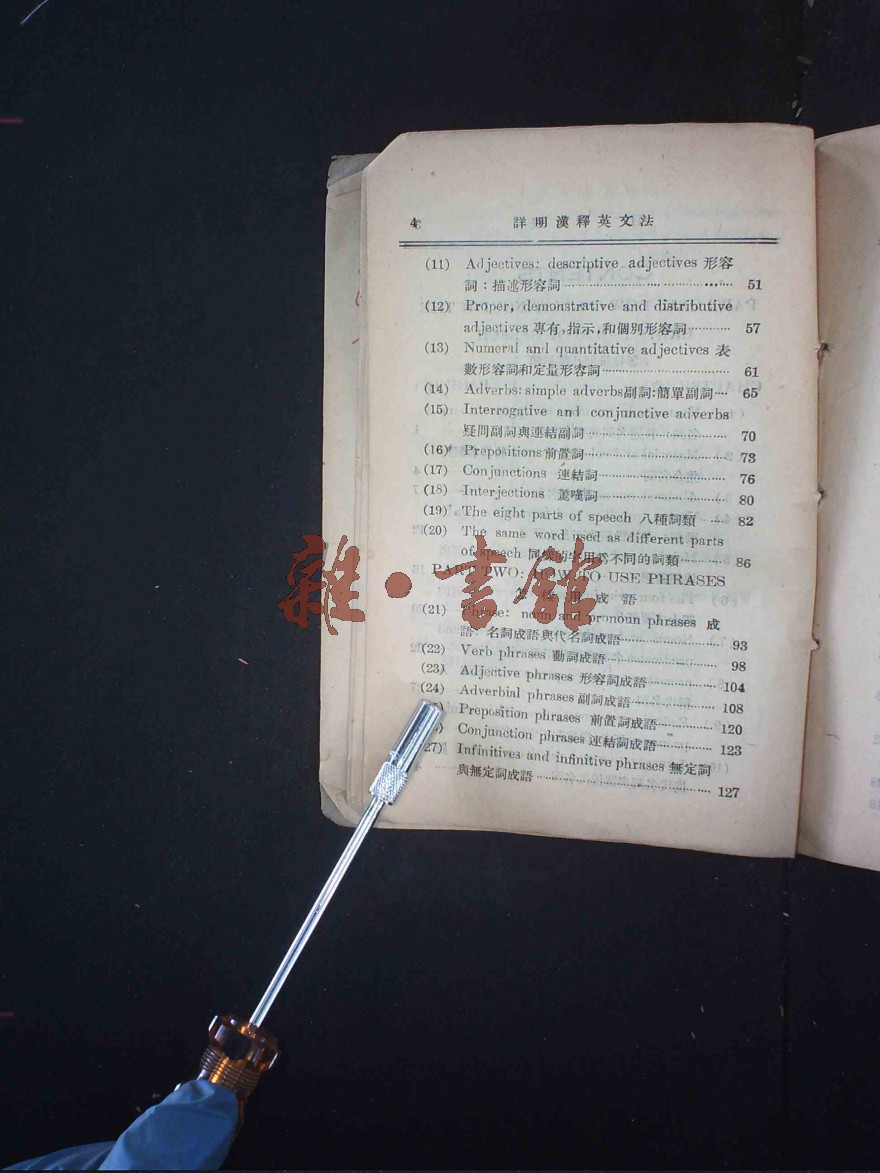 4 詳明漢釋英文法
(11) Adjectives: descriptive adjectives 形容
詞：描述形容詞 51
(12) Proper, demonstrative and distributive
adjectives 專有,指示,和個別形容詞 57
(13) Numeral and quantitative adjectives 表
數形容詞和定量形容詞 61
(14) Adverbs: simple adverbs副詞:簡單副詞 65
(15) Interrogative and conjunctive adverbs
疑問副詞與連結副詞 70
(16) Prepositions 前置詞 73
(17) Conjunctions 連結詞 76
(18) Interjections 驚嘆詞 80
(19) The eight parts of speech 八種詞類 82
(20) The same word used as different parts
of speech 同樣的字用爲不同的詞類 86
PART TWO: HOW TO USE PHRASES
用 成 語
(21) Phrase: noun and pronoun phrases 成
語：名詞成語與代名詞成語 93
(22) Verb phrases 動詞成語 98
(23) Adjective phrases 形容詞成語 104
(24) Adverbial phrases 副詞成語 108
Preposition phrases 前置詞成語 120
Conjunction phrases 連結詞成語 123
27) Infinitives and infinitive phrases 無定詞
與無定詞成語 127
雜·書館